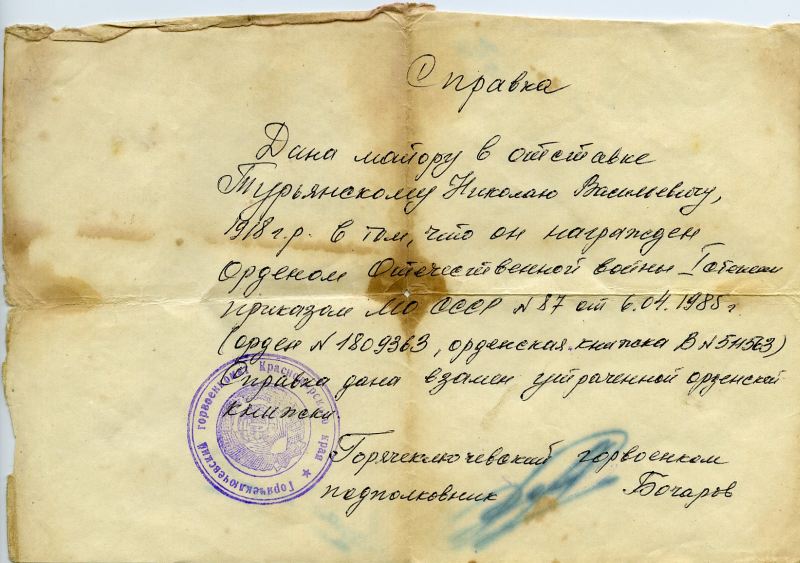 Справка
Дана майору в отставке
Турьянскому Николаю Васильевичу,
1918 г.р. в том, что он награжден
орденом Отечественной войны I степени
приказом МО СССР N 87 от 6.04.1985 г.
(орден N 1809363, орденская книжка В N 511563)
Справка дана взамен утраченной орденской
книжки
Горячеключевский горвоенком
подполковник Бочаров
Горячеключевский горвоенкомат Краснодарского края